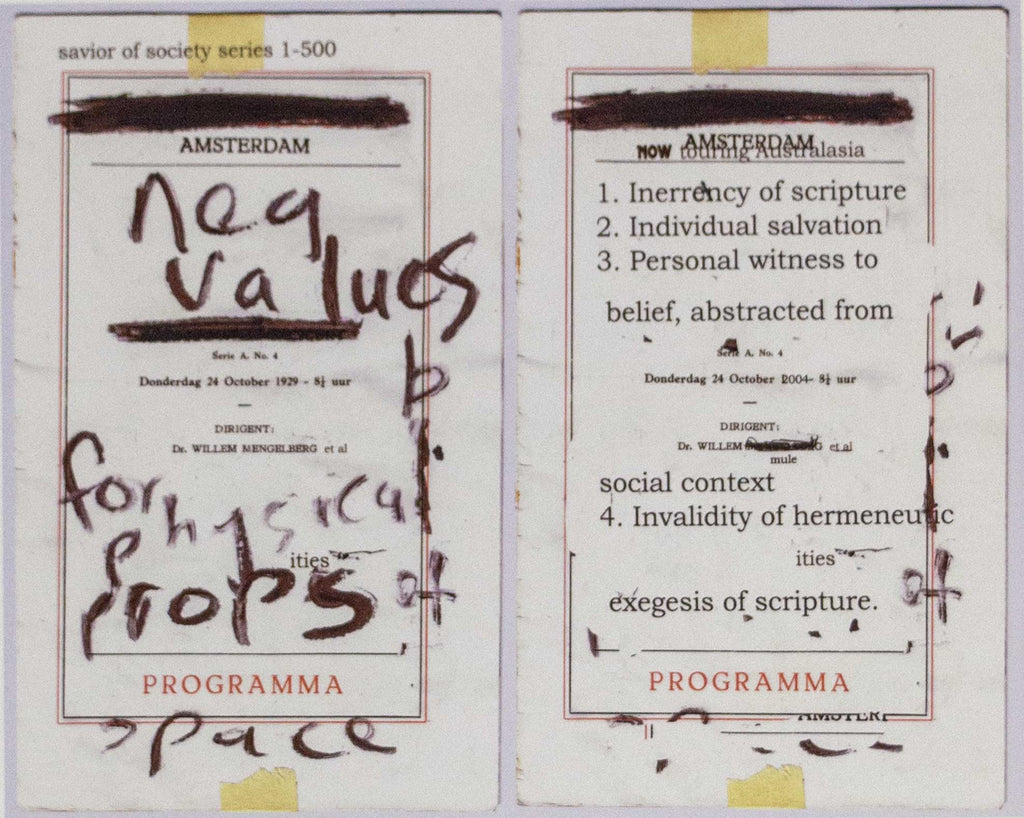 savior of society series 1-500
AMSTERDAM
neg
values
Serie A. No. 4
Donderdag 24 October 1929 - 8¼ uur
DIRIGENT:
Dr. WILLEM MENGELBERG et al
for
ities
props
of
PROGRAMMA
space
AMSTERDAM
NOW touring Australasia
1. Inerrency of scripture
2. Individual salvation
3. Personal witness to
belief, abstracted from
Serie A. No. 4
Donderdag 24 October 2004- 8¼ uur
DIRIGENT:
Dr. WILLEM G et al
mule
social context
4. Invalidity of hermeneutic
ities
of
exegesis of scripture.
PROGRAMMA